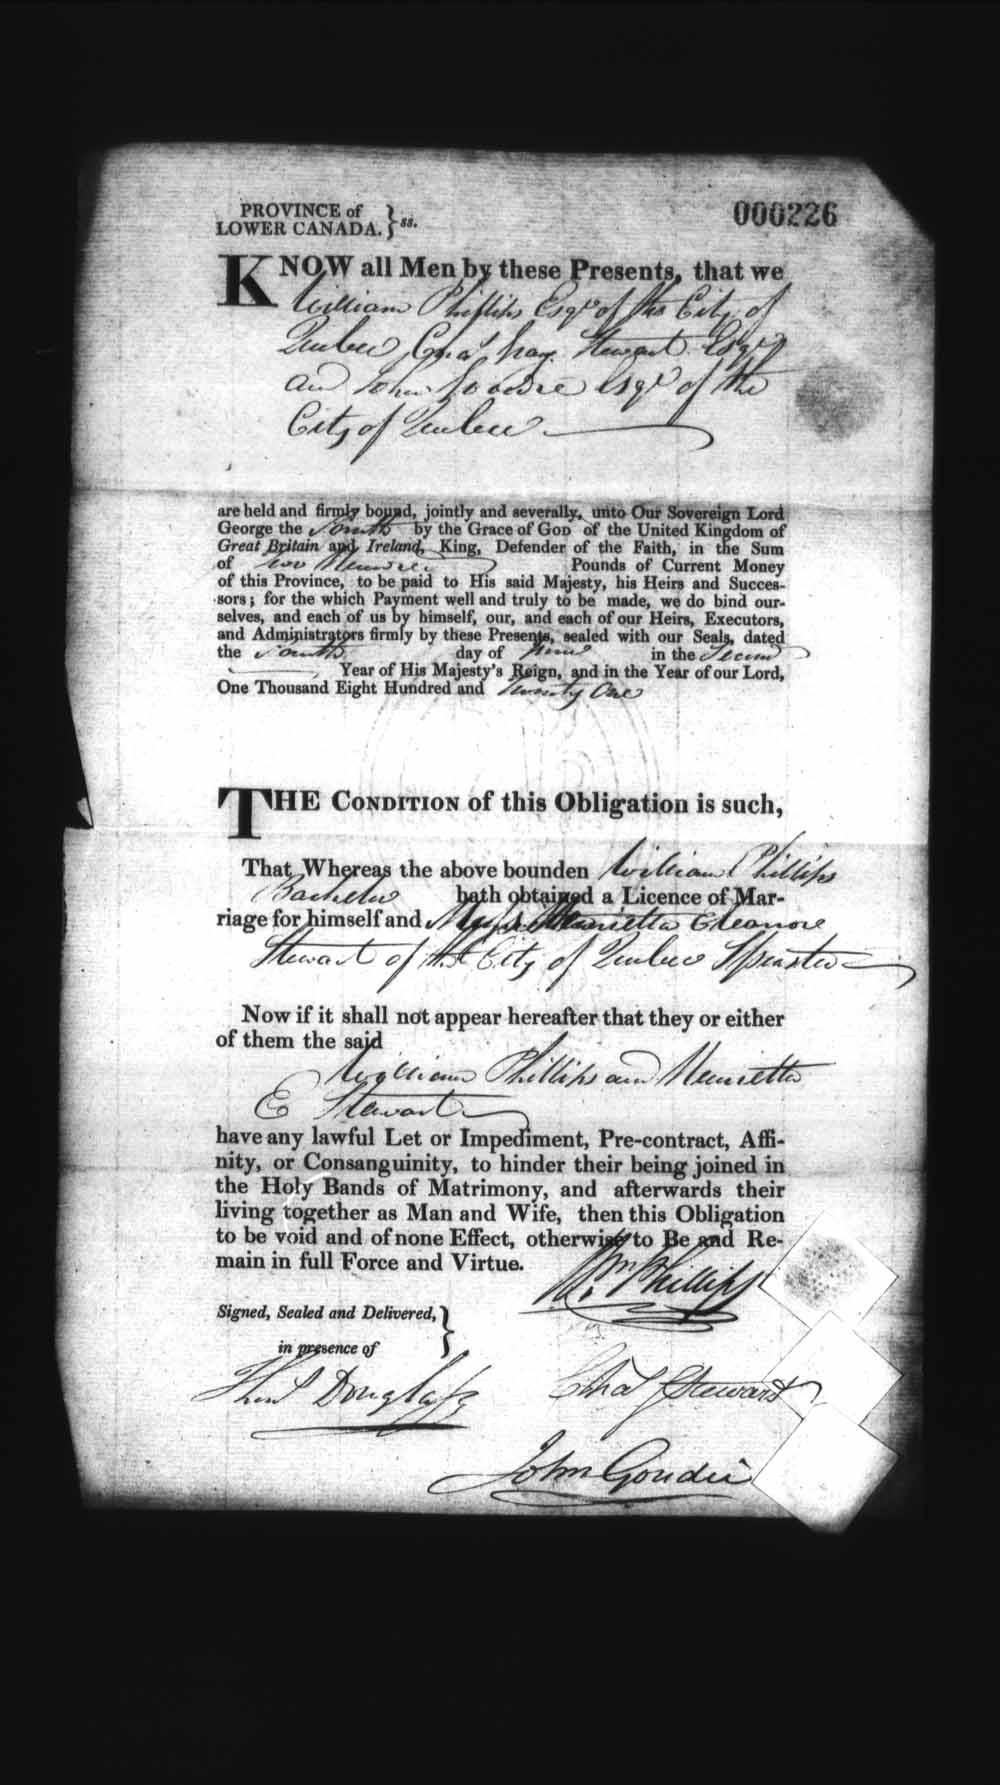 PROVINCE of
LOWER CANADA. } ss.
000226
KNOW all Men by these Presents, that we
William Phillips Esqr of the City of
Quebec, Chas Stewart Esqr
and John Goudie Esqr of the
City of Quebec
are held and firmly bound, jointly and severally, unto Our Sovereign Lord
George the Fourth by the Grace of GOD of the United Kingdom of
Great Britain and Ireland, King, Defender of the Faith, in the Sum
of Two Hundred Pounds of Current Money
of this Province, to be paid to His said Majesty, his Heirs and Succes-
sors; for the which Payment well and truly to be made, we do bind our-
selves, and each of us by himself, our, and each of our Heirs, Executors,
and Administrators firmly by these Presents, sealed with our Seals, dated
the Fourth day of June in the Second
Year of His Majesty's Reign, and in the Year of our Lord,
One Thousand Eight Hundred and Twenty One
THE CONDITION of this Obligation is such,
That Whereas the above bounden William Phillips
Bachelor hath obtained a Licence of Mar-
riage for himself and Miss Henrietta Eleanore
Stewart of the City of Quebec Spinster
Now if it shall not appear hereafter that they or either
of them the said
William Phillips and Henrietta
E Stewart
have any lawful Let or Impediment, Pre-contract, Affi-
nity, or Consanguinity, to hinder their being joined in
the Holy Bands of Matrimony, and afterwards their
living together as Man and Wife, then this Obligation
to be void and of none Effect, otherwise to Be and Re-
main in full Force and Virtue.
Wm Phillips
Signed, Sealed and Delivered,
in presence of }
Douglass
Chas G Stewart
John Goudie